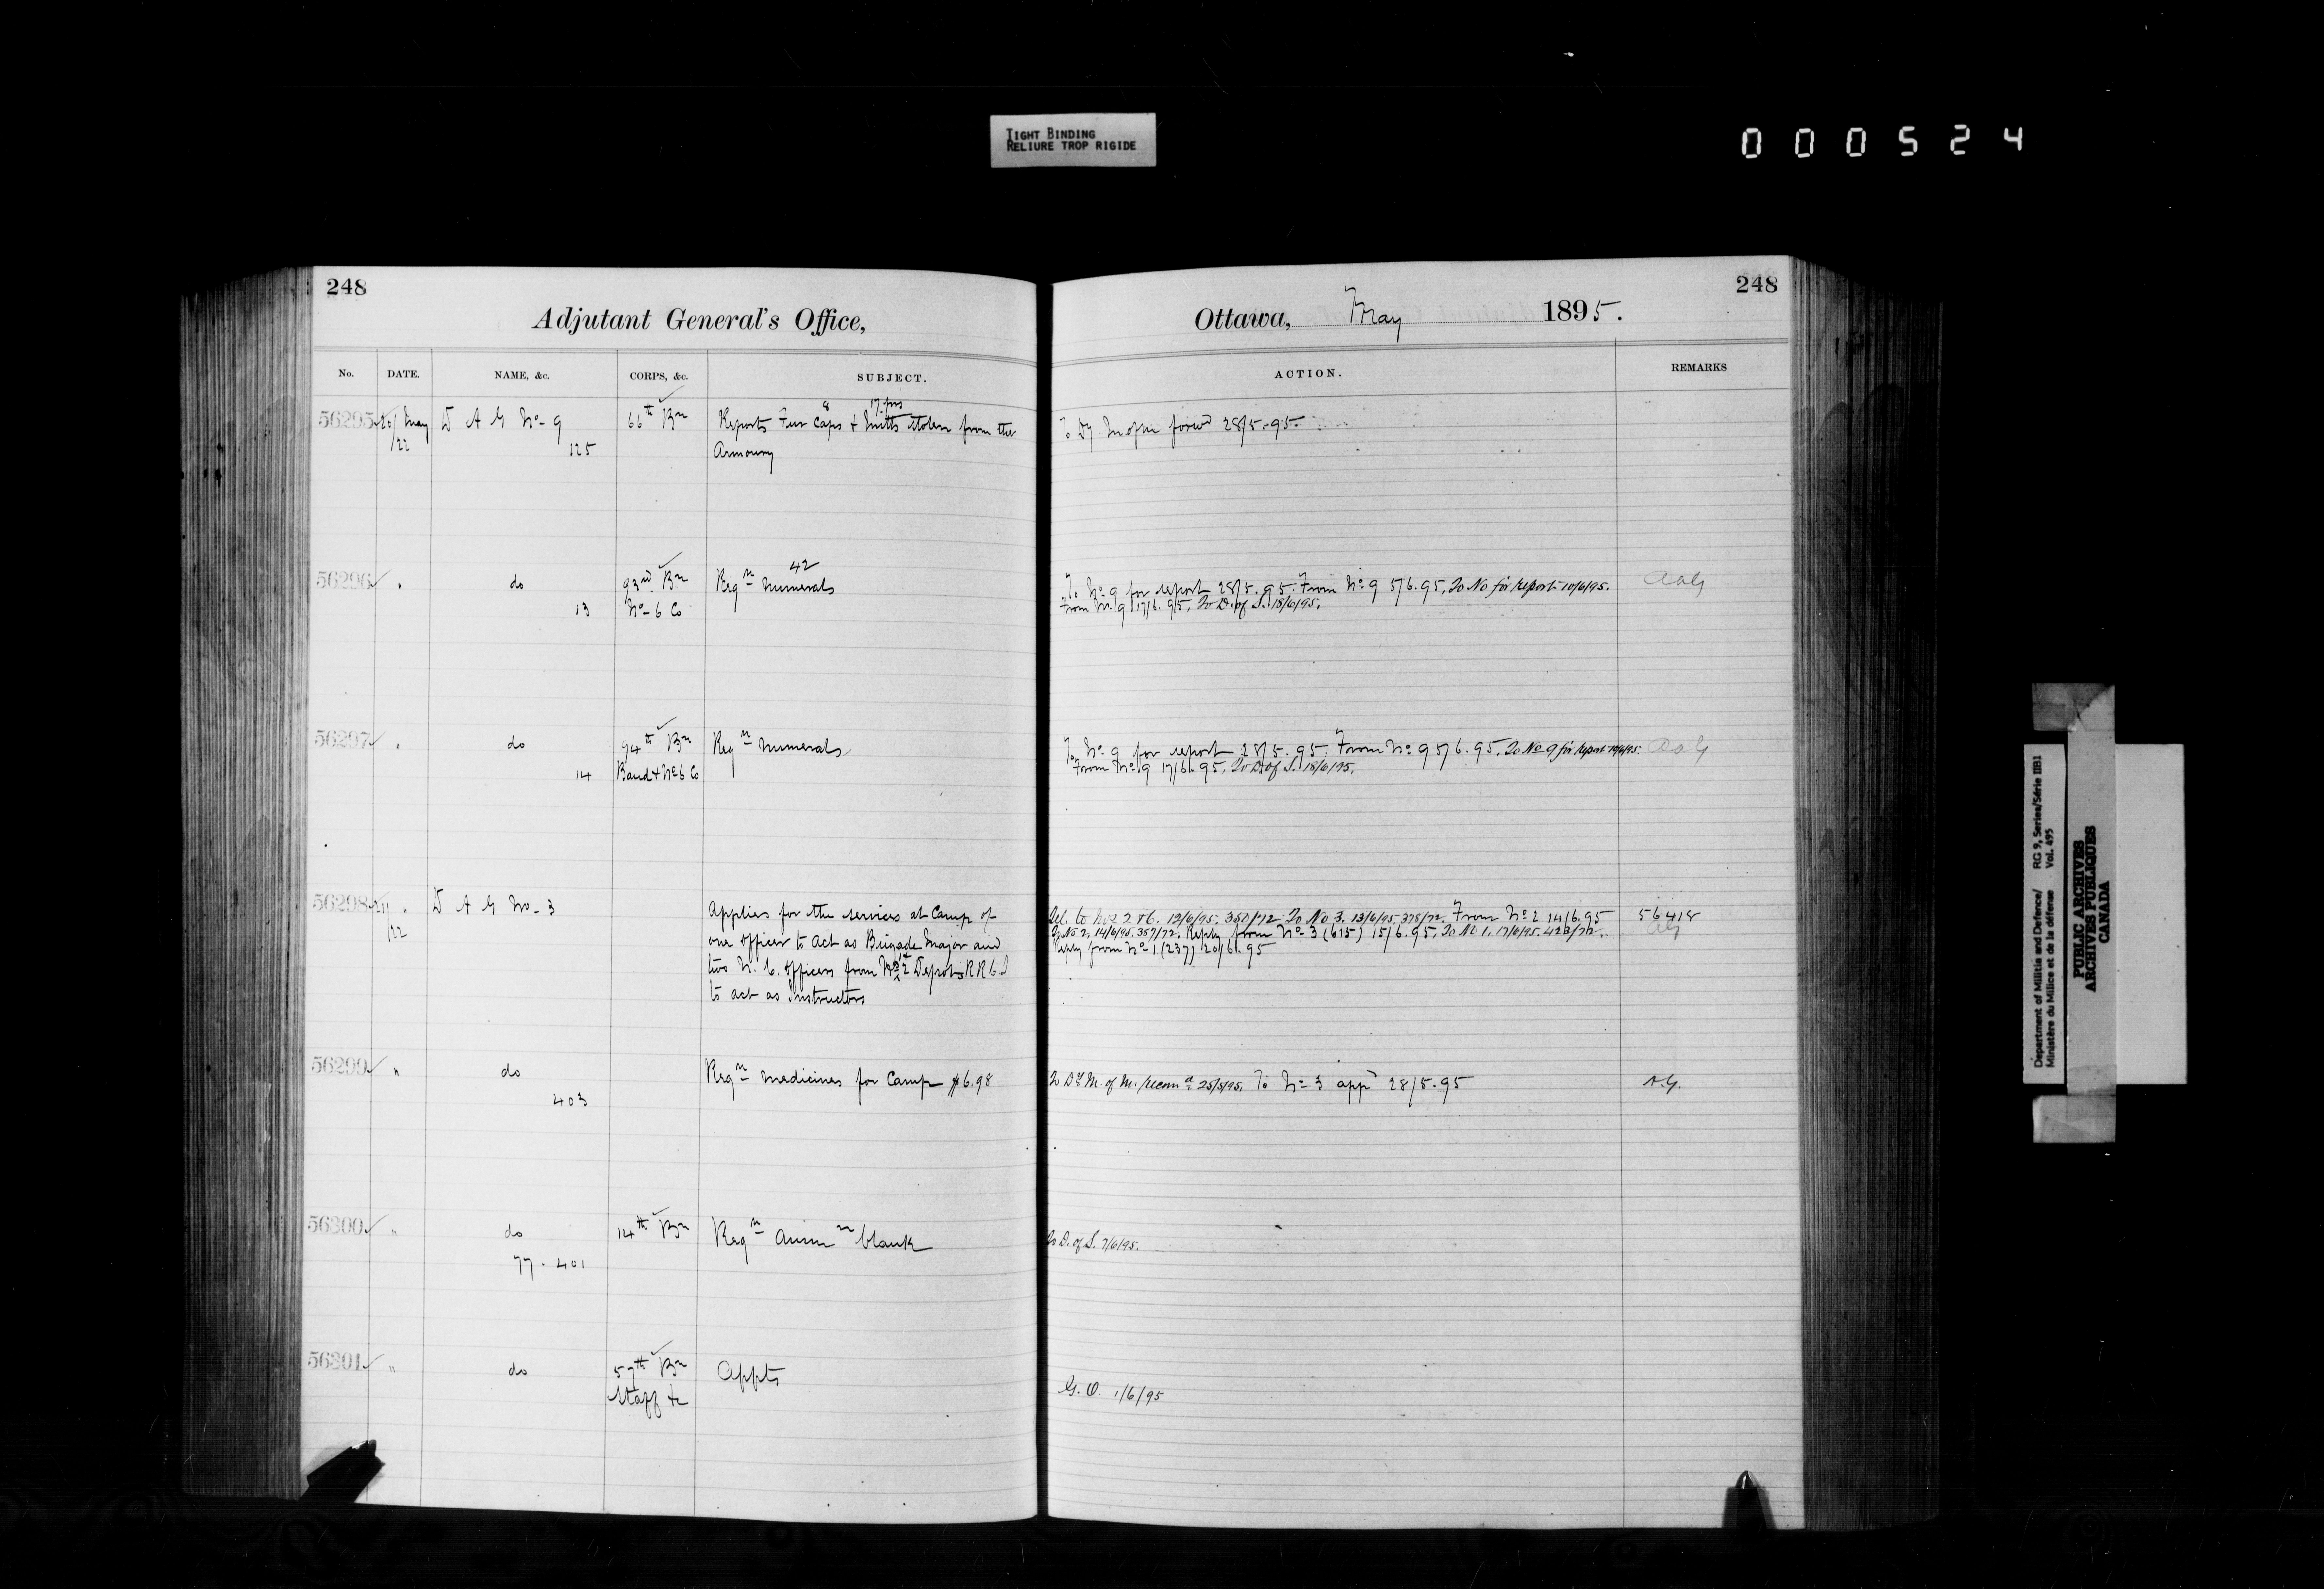 TIGHT BINDING
RELIURE TROP RIGIDE
000524
248
Adjutant General's Office,
No. DATE. NAME, &c. CORPS, &c. SUBJECT.
56295 20/ May D A G No- 9 66th Bn Reports Fur Caps 8 + Mitts 17 prs stolen from the
/22 125 Armoury
56296 " do 93rd Bn Reqn 42 Numerals
13 No- 6 Co
56297 " do 94th Bn Reqn Numerals
14 Band + No 6 Co
56298 21/ " D A G No- 3 Applies for the services at Camp of
/22 one officer to act as Brigade Major and
two N. C. Officers from No 2 Depots R R C I
to act as Instructors
56299 " do Reqn Medicines for Camp $6.98
403
56300 " do 14th Bn Reqn Ammn blank
77. 401
56301 " do 57th Bn Appts
Staff &c
248
Ottawa, May 1895.
ACTION. REMARKS
To Dy M of M forwd 28/5.95.
To No 9 for report 28/5.95. From No 9 5/6.95, To No for report 10/6/95. AAG
From No. 9 17/6.95, To D. of S. 18/6/95.
To No 9 for report 28/5.95. From No 9 5/6.95, To No 9 for report 10/6/95. AAG
From No 9 17/6.95, To D of S. 18/6/95.
Tel. to Nos 2 & 6. 12/6/95. 350/72 To No 3. 13/6/95 375/72. From No 2 14/6.95 56418
To No 2, 14/6/95. 357/72. Reply from No 3 (615) 15/6.95, To No 1, 17/6/95. 423/72. AG
Reply from No 1 (237) 20/6.95
To Dy M. of M. /recomd 25/5/95. To No 3 appd 28/5.95 A.G.
To D. of S. 7/6/95.
G. O. 1/6/95
Department of Militia and Defence/ RG 9, Series/Série IIB1
Ministère du Milice et de la défense Vol. 495
PUBLIC ARCHIVES
ARCHIVES PUBLIQUES
CANADA